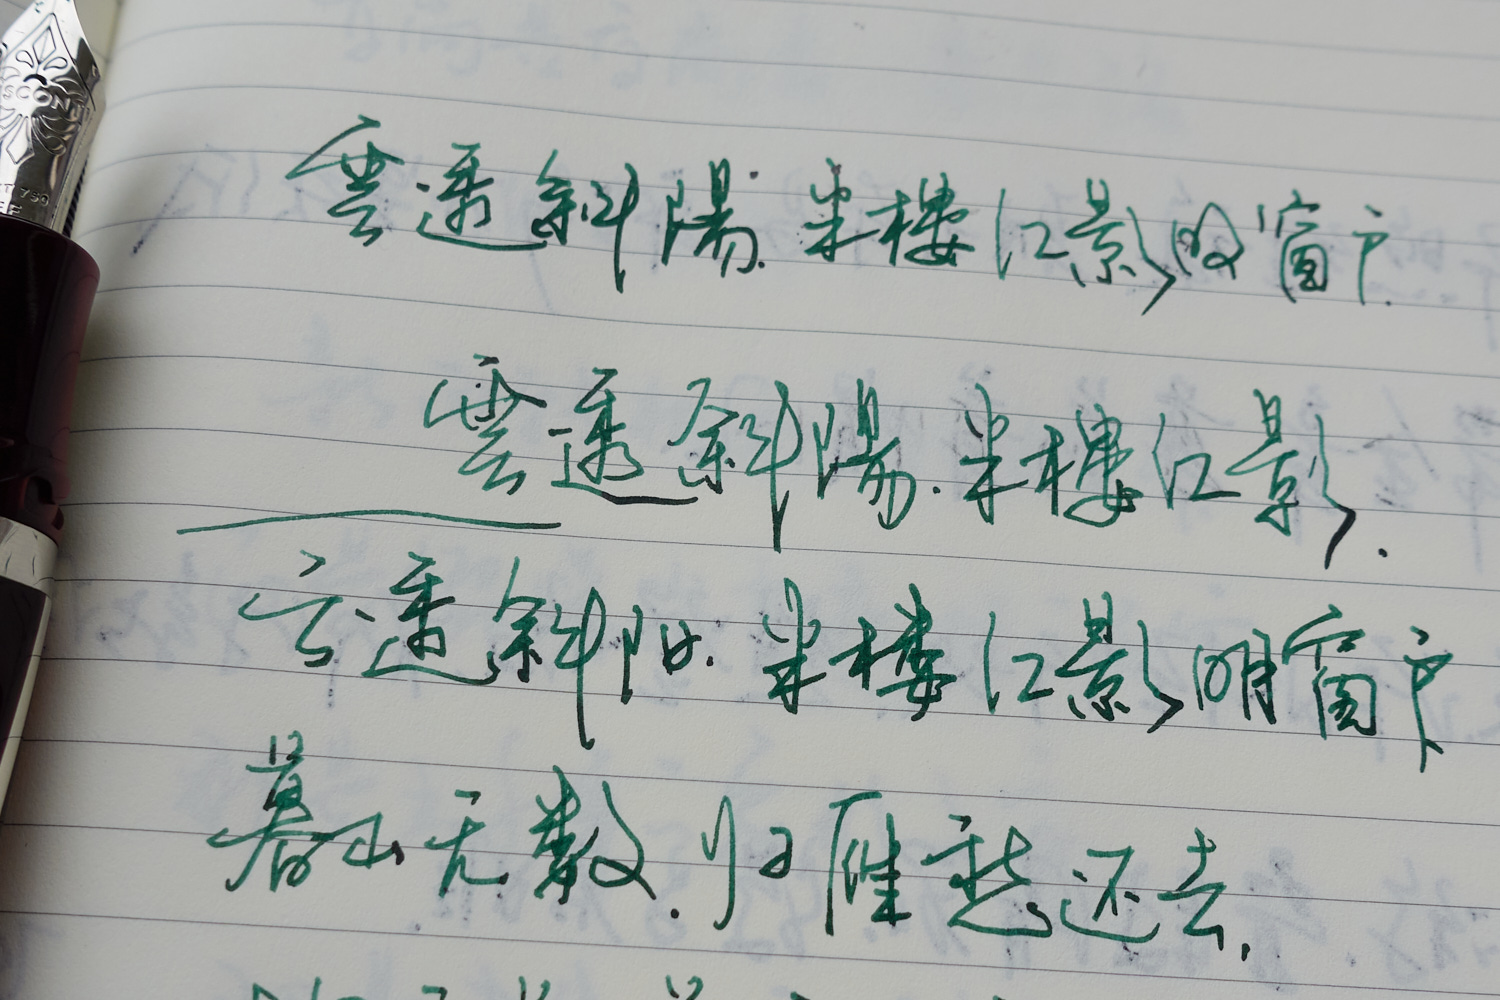 雲透斜陽.半楼江影明窗户.
雲透斜陽.半楼江影.
云透斜阳.半楼江影明窗户
暮山无数.归雁愁还去.